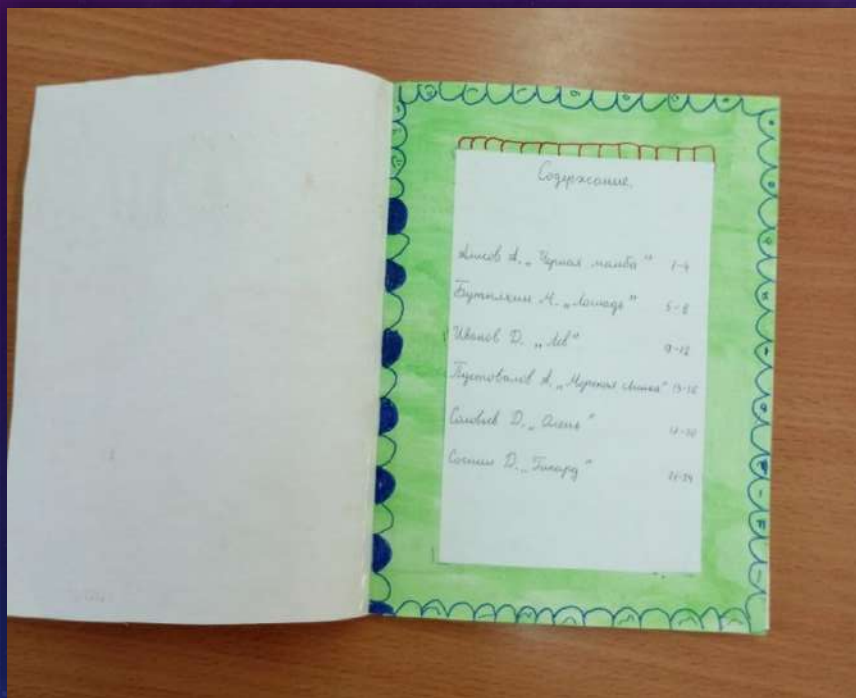 Содержание.
А. „Черная мамба" 1-4
Бутылкин М. „Лошадь" 5-8
Иванов D. „Лев" 9-12
Пустовалов А. „Морская свинка"
Соловьев D. „Олень"
D. „Гепард" 21-24